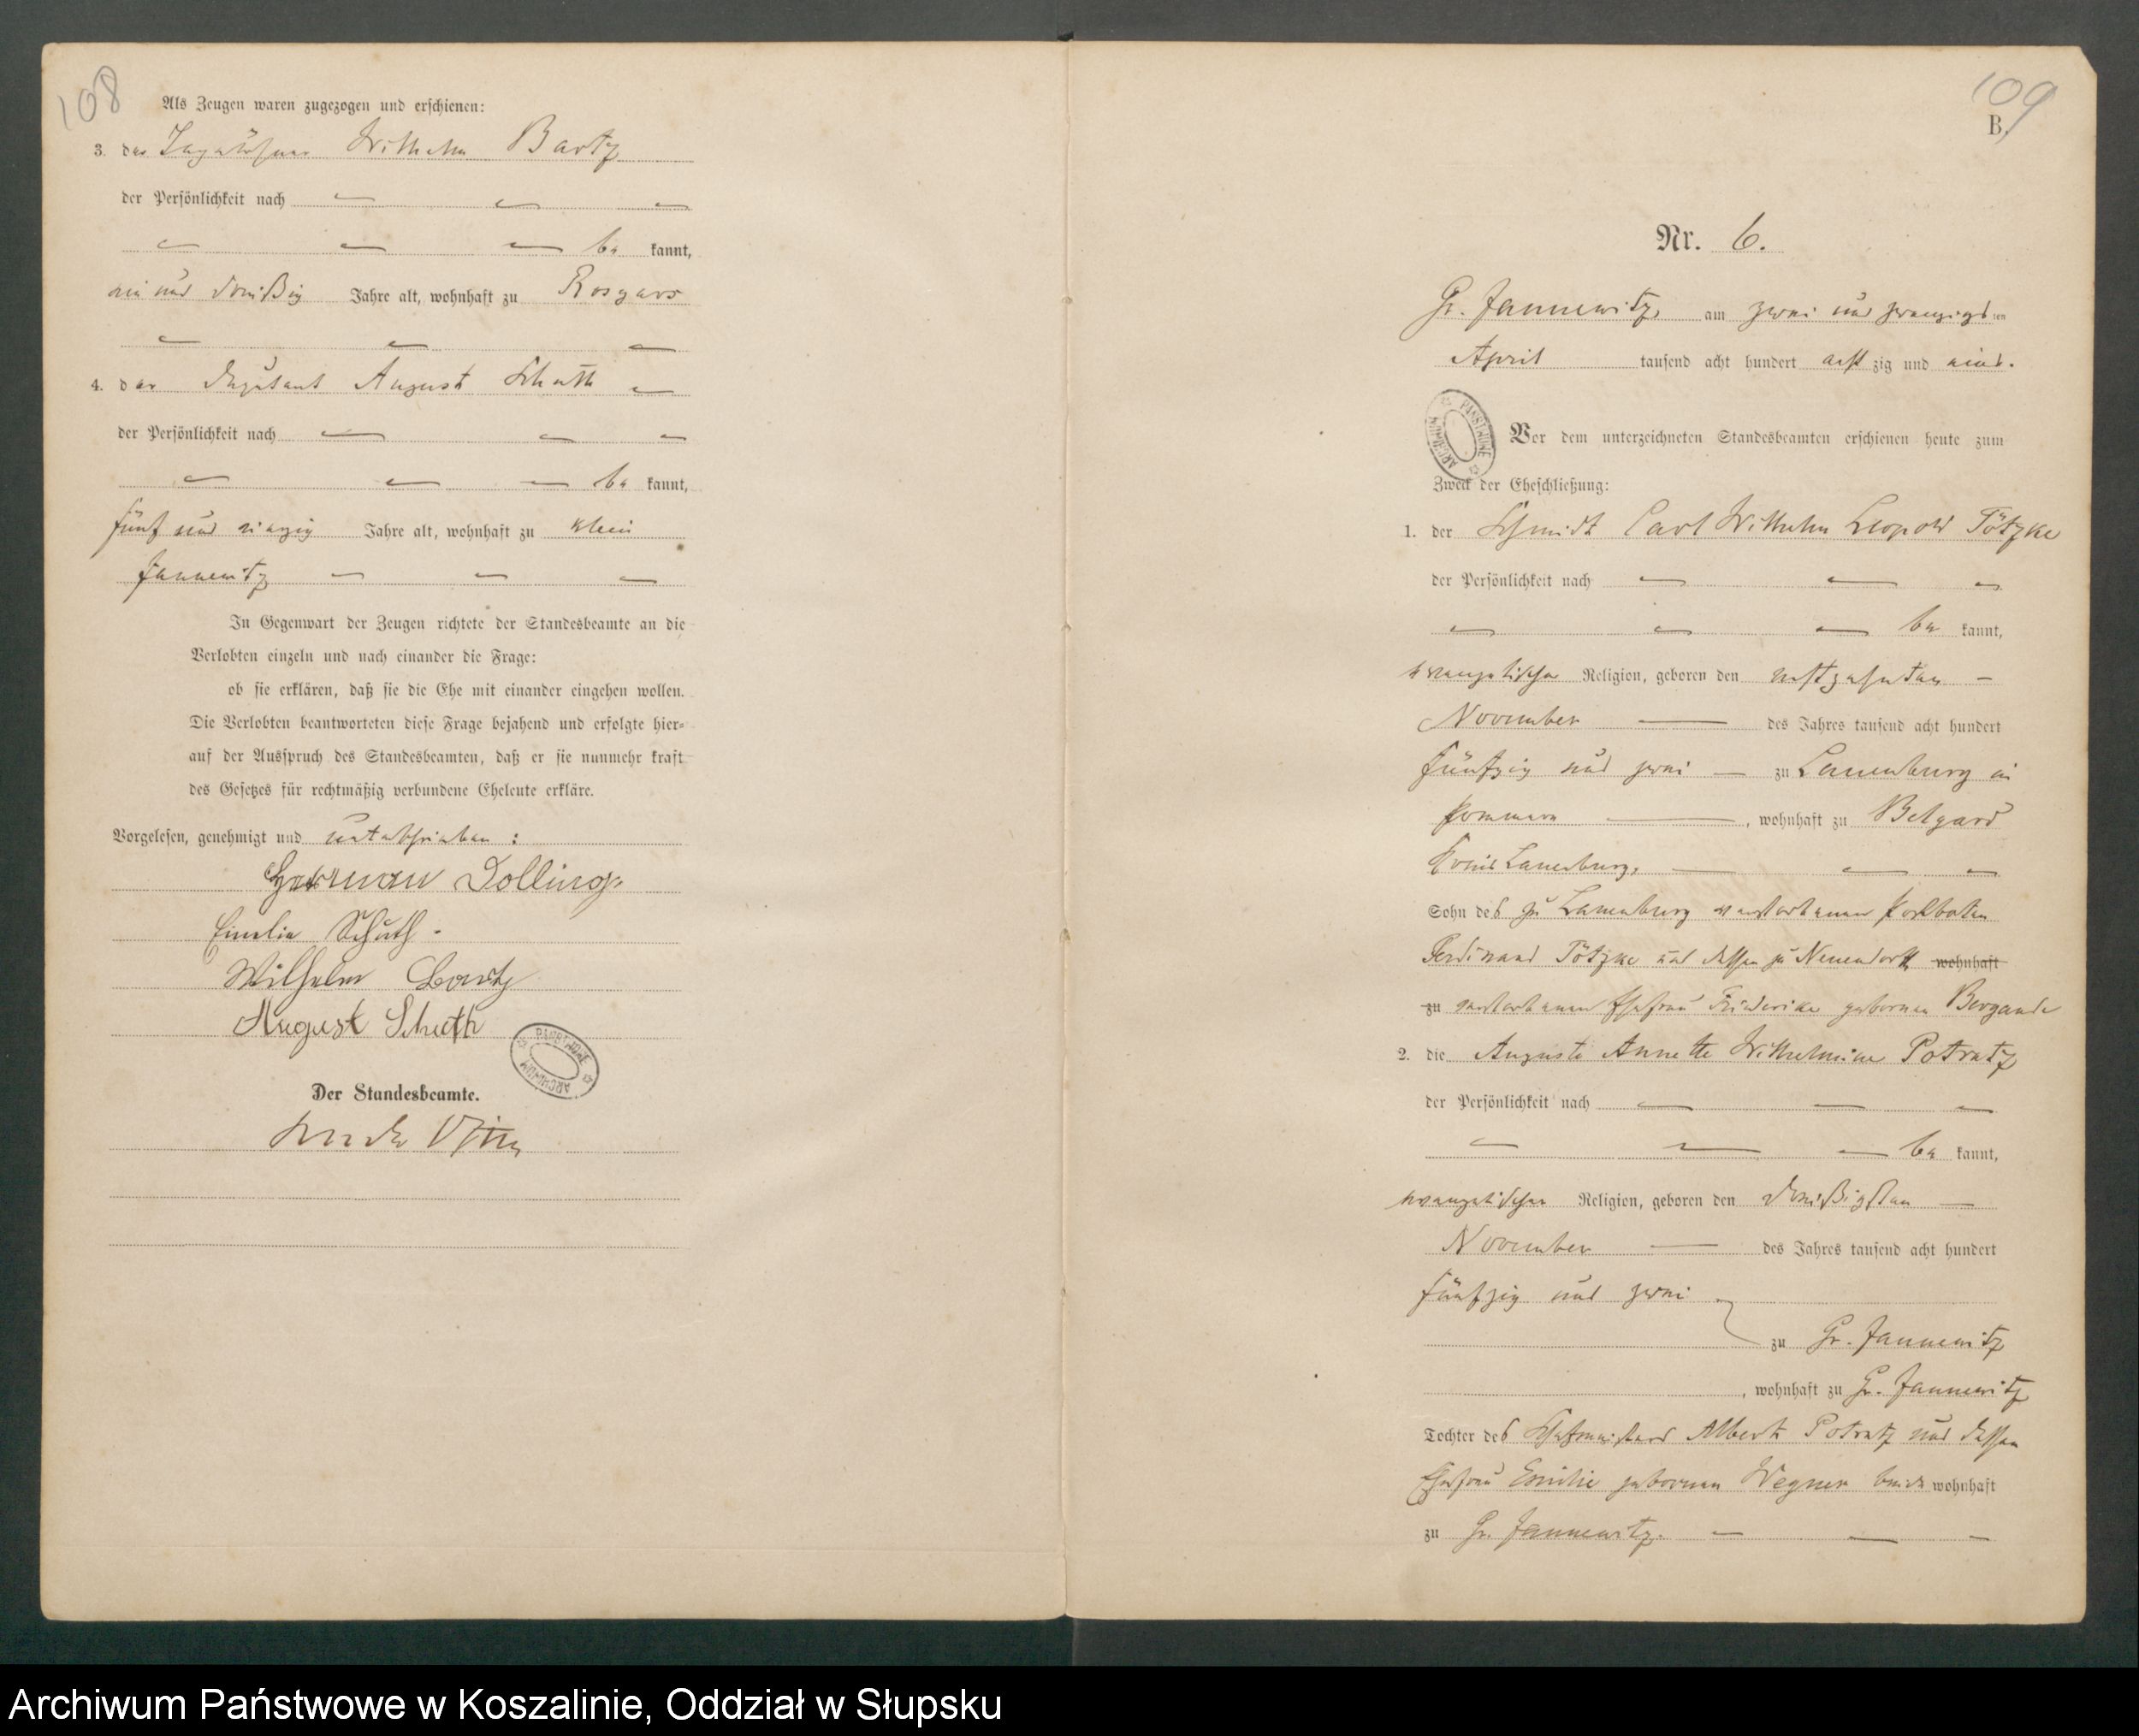 108
Als Zeugen waren zugezogen und erschienen:
3. der Tagelöhner Wilhelm Bartz
der Persönlichkeit nach
be kannt,
ein und dreißig Jahre alt, wohnhaft zu Rosgars
4. der Deputant August Schuth
der Persönlichkeit nach
be kannt,
fünf und vierzig Jahre alt, wohnhaft zu Klein
Jannewitz
In Gegenwart der Zeugen richtete der Standesbeamte an die
Verlobten einzeln und nach einander die Frage:
ob sie erklären, daß sie die Ehe mit einander eingehen wollen.
Die Verlobten beantworteten diese Frage bejahend und erfolgte hier-
auf der Ausspruch des Standesbeamten, daß er sie nunmehr kraft
des Gesetzes für rechtmäßig verbundene Eheleute erkläre.
Vorgelesen, genehmigt und unterschrieben:
Herman Dolling
Emelie Schuth.
Wilhelm Bartz
August Schuth
PAŃSTWOWE ARCHIWUM
Der Standesbeamte.
109
B.
Nr. 6.
Gr. Jannewitz, am zwei und zwanzigsten
April tausend acht hundert acht zig und eins.
PAŃSTWOWE ARCHIWUM
Vor dem unterzeichneten Standesbeamten erschienen heute zum
Zweck der Eheschließung:
1. der Schmidt Carl Wilhelm Leopold Tötzke
der Persönlichkeit nach
be kannt,
evangelischer Religion, geboren den achtzehnten
November des Jahres tausend acht hundert
fünfzig und zwei zu Lauenburg in
Pommern, wohnhaft zu Belgard
Kreis Lauenburg,
Sohn des zu Lauenburg verstorbenen Postboten
Ferdinand Tötzke und dessen zu Neuendorff wohnhaft
zu verstorbenen Ehefrau Friederike geborenen Bergande
2. die Auguste Annette Wilhelmine Potratz
der Persönlichkeit nach
be kannt,
evangelischer Religion, geboren den dreißigsten
November des Jahres tausend acht hundert
fünfzig und zwei
zu Gr. Jannewitz
, wohnhaft zu Gr. Jannewitz
Tochter des Schafmeisters Albert Potratz und dessen
Ehefrau Emilie geborenen Wegner beide wohnhaft
zu Gr. Jannewitz.
Archiwum Państwowe w Koszalinie, Oddział w Słupsku